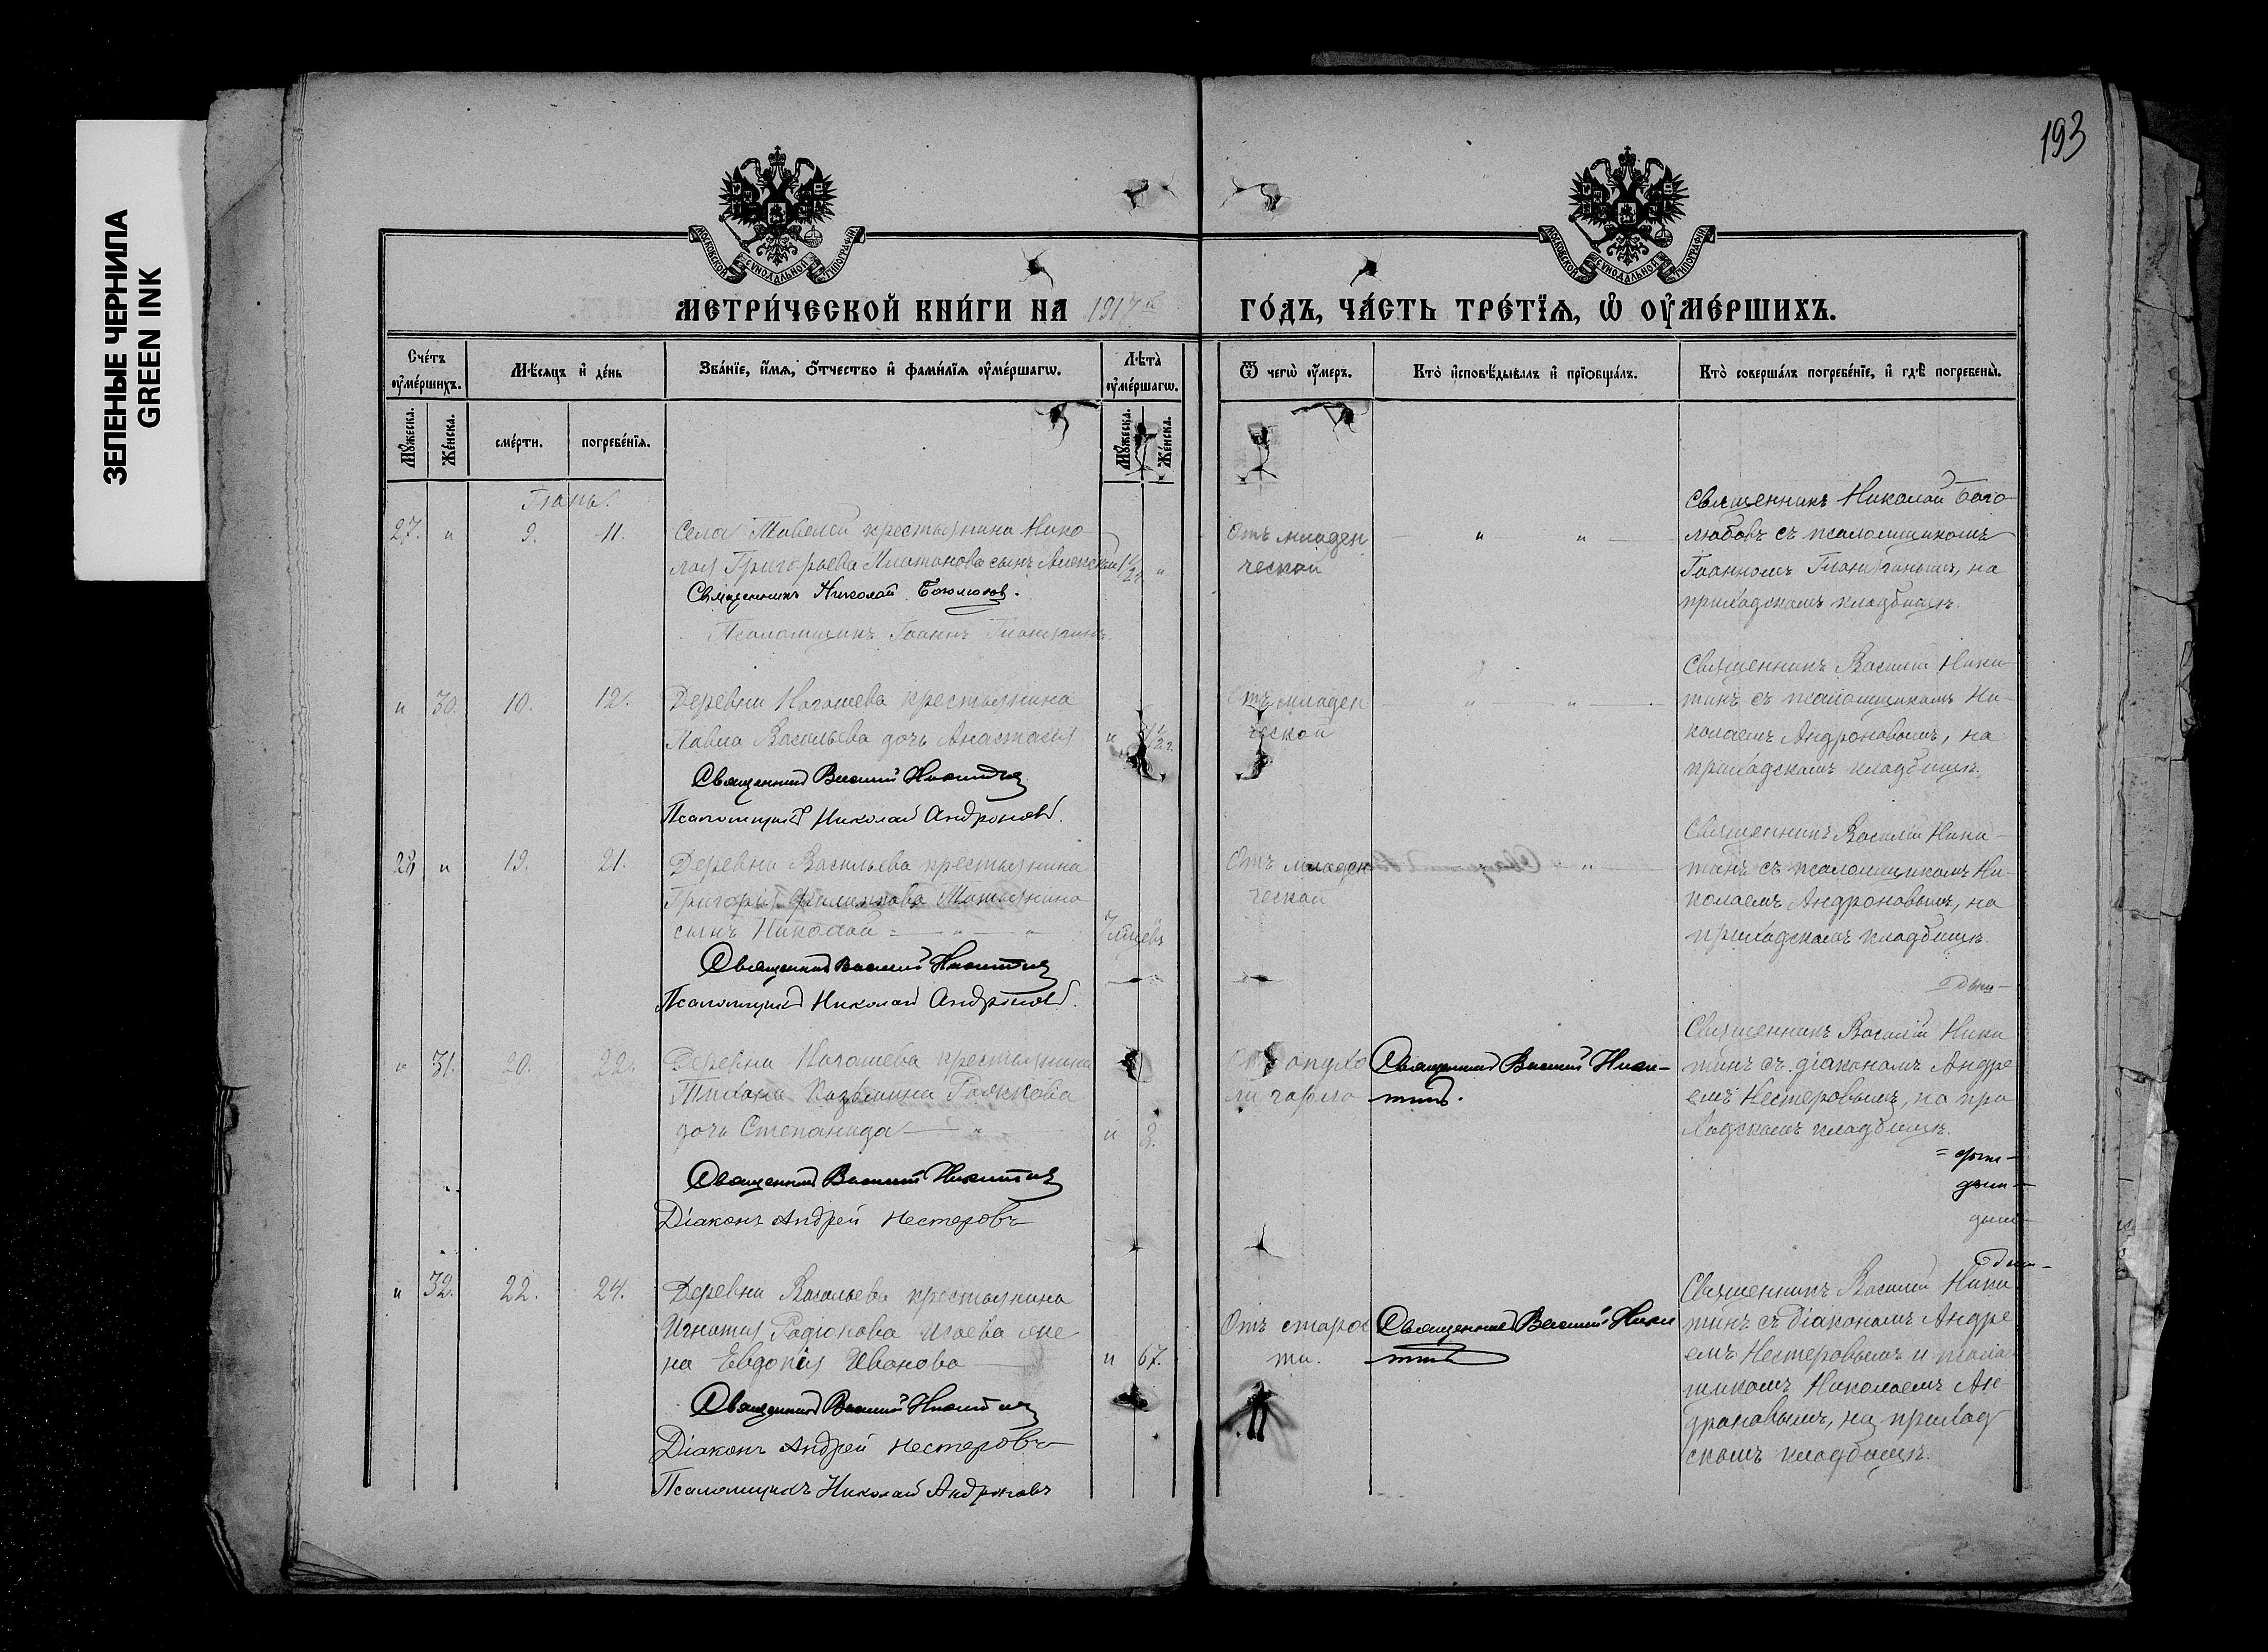 ЗЕЛЕНЫЕ ЧЕРНИЛА
GREEN INK
193
МОСКОВСКОЙ СѴНОДАЛЬНОЙ ТИПОГРАФІИ
МОСКОВСКОЙ СѴНОДАЛЬНОЙ ТИПОГРАФІИ
МЕТРИ́ЧЕСКОЙ КНИ́ГИ НА 1917й ГО́ДЪ, ЧА́СТЬ ТРЕ́ТЇѦ, Ѽ ОУ҆МЕ́РШИХЪ.
Сче́тъ оу҆ме́ршихъ.
Мѣ́сѧцъ и҆ де́нь
Зва́нїе, и҆́мѧ, ѻ҆́тчество и҆ фами́лїѧ оу҆ме́ршагѡ.
Лѣ̑та оу҆ме́ршагѡ.
Ѿ чегѡ̀ оу҆́меръ.
Кто̀ и҆сповѣ́дывалъ и҆ прїѡбща́лъ.
Кто̀ соверша́лъ погребе́нїе, и҆ гдѣ̀ погребены̀.
Мꙋ́жеска.
Же́нска.
сме́рти.
погребе́нїѧ.
Мꙋ́жеска.
Же́нска.
27. " 9. 11.
Села крестьянина Нико
лая Григорьева Платонова сынъ Алексѣй 1½ г. "
Священникъ Николай Боголюбов.
Псаломщикъ Іоаннъ
Отъ младен
ческой
" "
Священникъ Николай Бого-
любовъ съ псаломщикомъ
Іоанномъ на
приходскомъ кладбищѣ.
" 30. 10. 12.
Деревни крестьянина
Павла Васильева дочь Анастасія " 1½ г.
Священникъ Василій Никитин
Псаломщикъ Николай Андроновъ.
Отъ младен
ческой
" "
Священникъ Василій Ники-
тинъ съ псаломщикомъ Ни-
колаемъ Андроновымъ, на
приходскомъ кладбищѣ.
28 " 19. 21.
Деревни Васильева крестьянина
Григорія Филиппова
сынъ Николай
Священникъ Василій Никитин
Псаломщикъ Николай Андроновъ.
Отъ младен
ческой
"
Священникъ Василій Ники-
тинъ съ псаломщикомъ Ни-
колаемъ Андроновымъ, на
приходскомъ кладбищѣ.
" 31. 20. 22.
Деревни крестьянина
Тихона Козьмина
дочь Степанида " 2.
Священникъ Василій Никитин
Діаконъ Андрей Нестеровъ
Отъ опухо
ли горла
Священникъ Василій Ники-
тинъ.
Священникъ Василій Ники
тинъ съ діакономъ Андре
емъ Нестеровымъ, на при
ходскомъ кладбищѣ.
" 32. 22. 24.
Деревни Васильева крестьянина
Игнатія Родіонова Исаева же
на Евдокія Иванова " 67.
Священникъ Василій Никитин
Діаконъ Андрей Нестеровъ
Псаломщикъ Николай Андроновъ
Отъ старос
ти.
Священникъ Василій Ники
тинъ
Священникъ Василій Ники
тинъ съ Діакономъ Андре
емъ Нестеровымъ и псалом
щикомъ Николаемъ Ан-
дроновымъ, на приход
скомъ кладбищѣ.